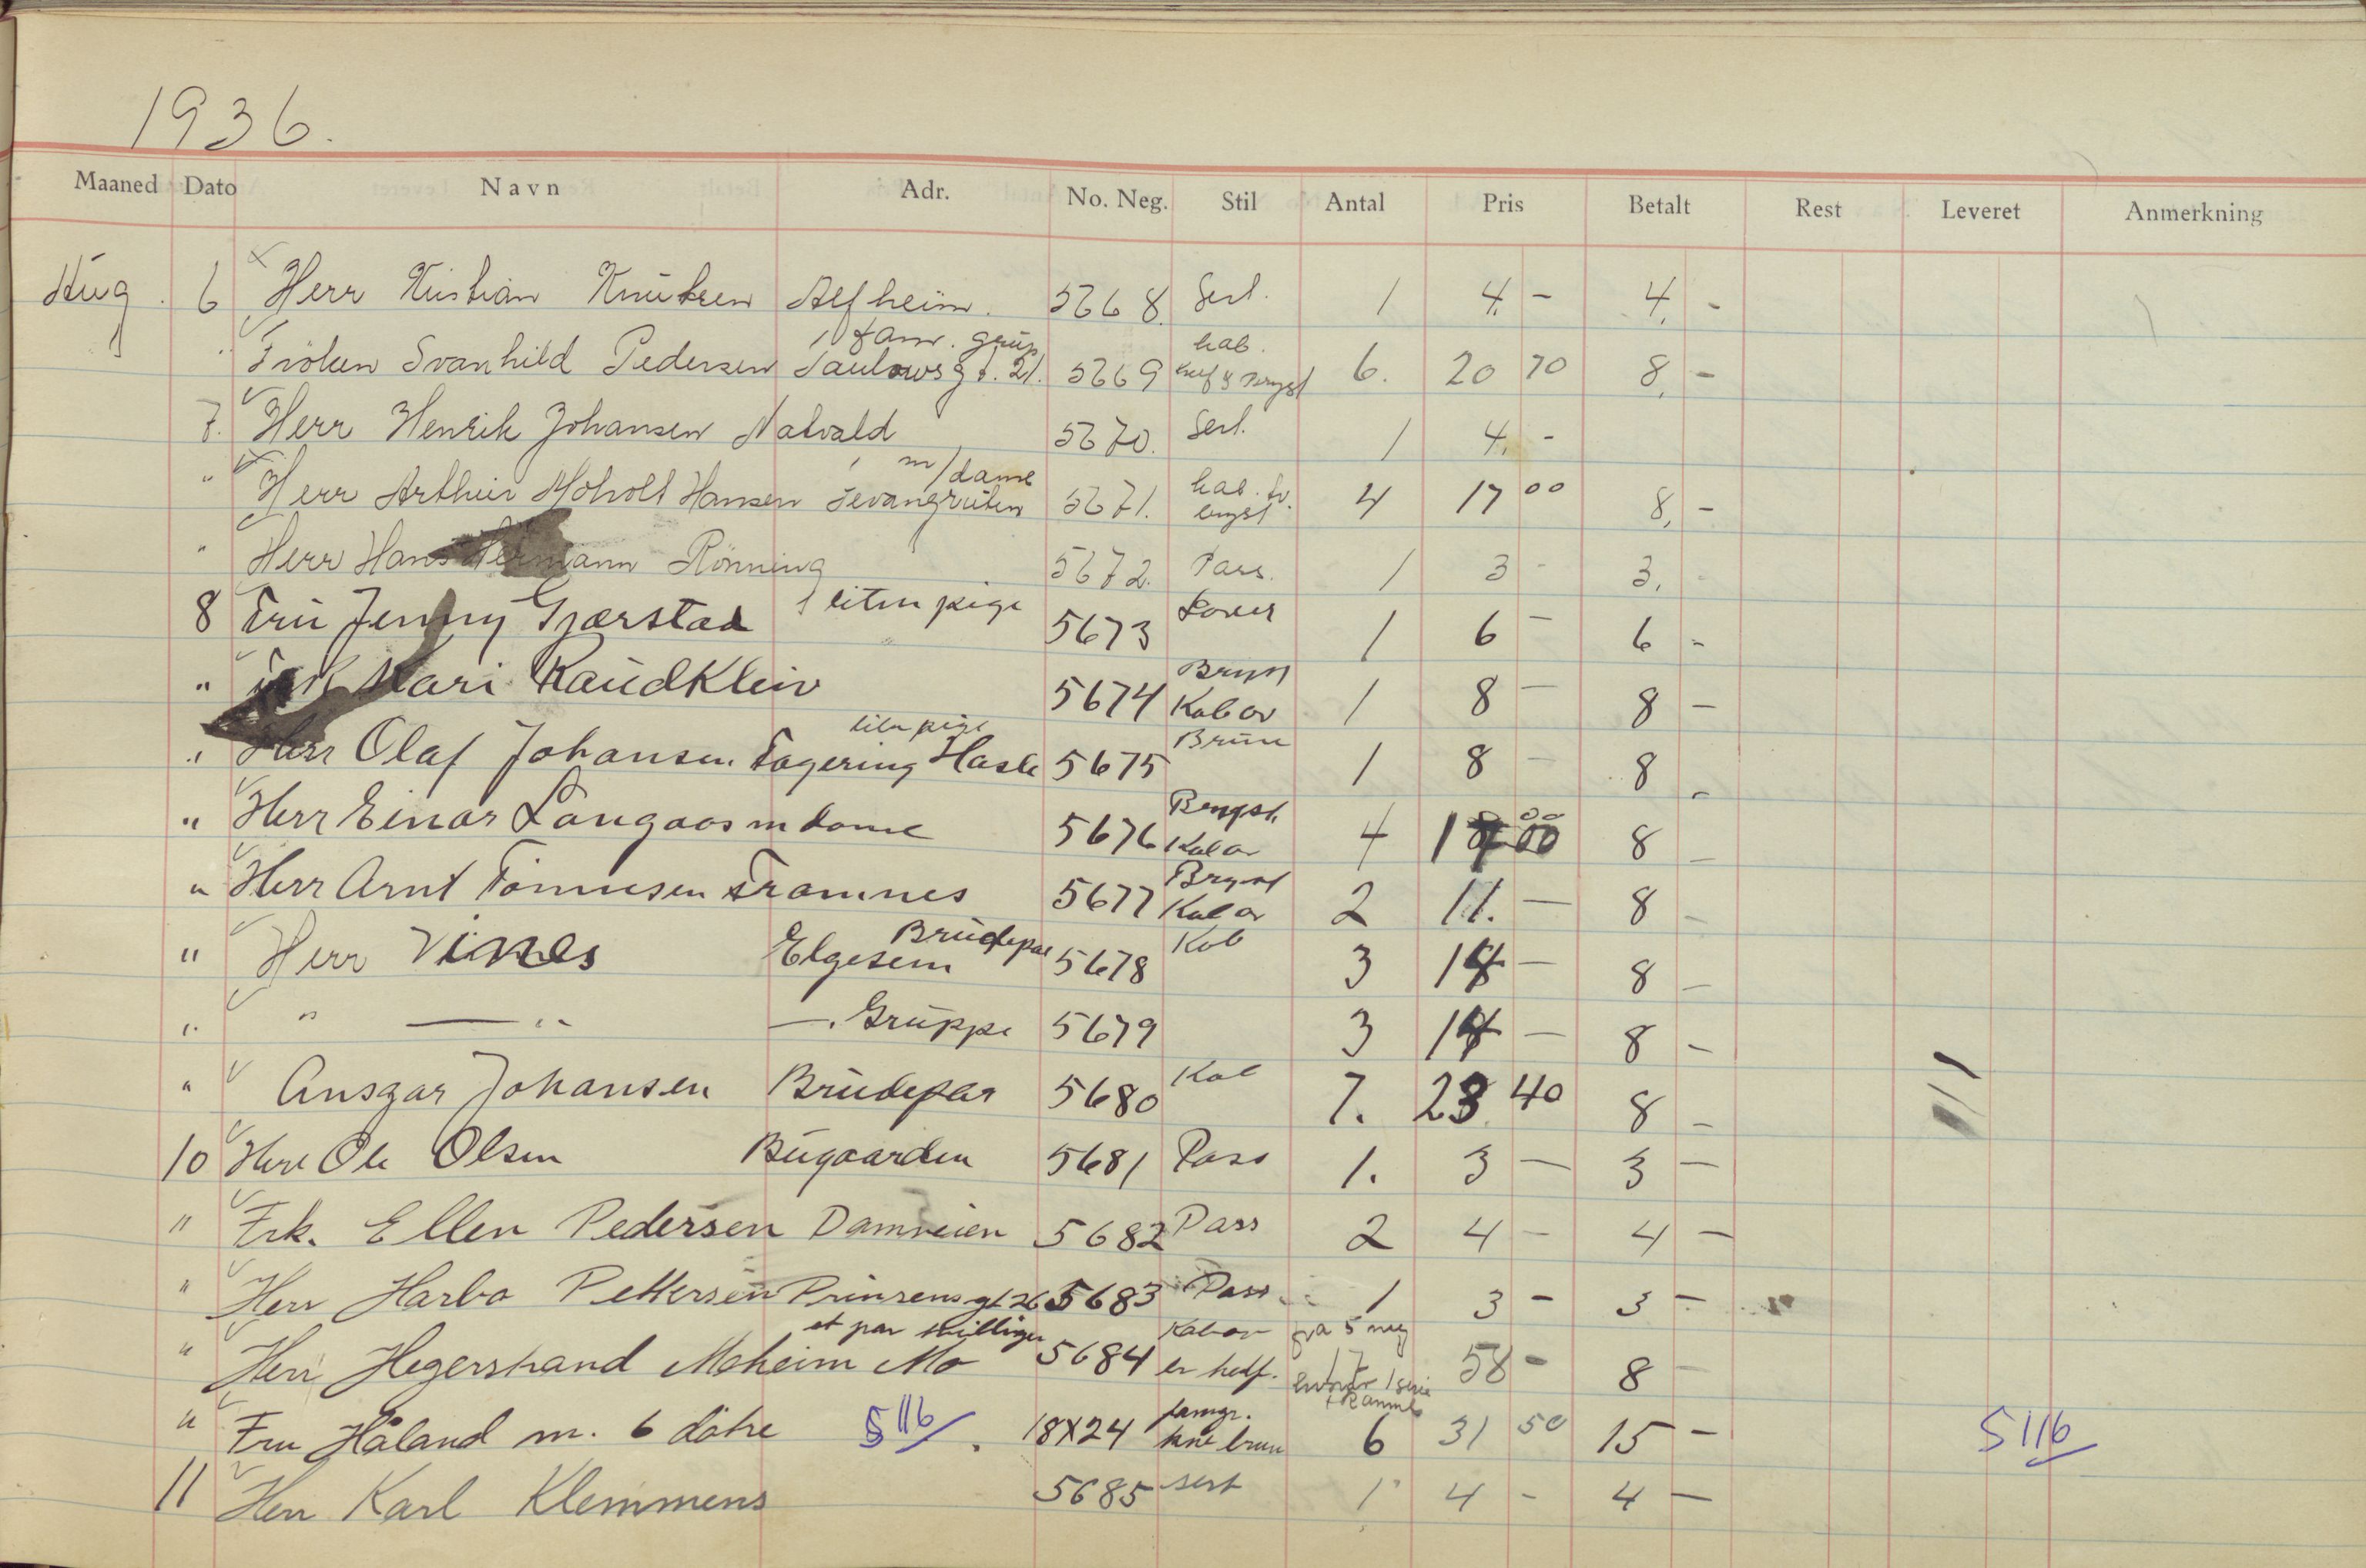 1936.
Maaned Dato Navn Adr. No. Neg. Stil Antal Pris Betalt Rest Leveret Anmerkning
Aug. 6 Herr Kristian Knutsen Alfheim. 5668. Serl. 1 4. - 4. -
1 fam. grup hab.
" Fröken Svanhild Pedersen Paulowsgt. 21. 5669 6. 20 70 8. -
7. Herr Henrik Johansen Natvald 5670. Serl. 1 4. -
m/dame hab. bv.
" Herr Arthur Moholt Hansen 5671. bryst 4 17 00 8. -
" Herr Hans Hermann Rönning 5672. Pass. 1 3 - 3. -
8 Fru Jenny Gjærstad 1 liten pige 5673 1 6 - 6 -
Bryst
" Frk Kari Raudkleiv 5674 Kabov 1 8 - 8 -
liten pige Brun
" Herr Olaf Johansen Fagering Hasle 5675 1 8 - 8 -
Bryst.
" Herr Einar Langaas m dame 5676 Kabov 4 00 8 -
Bryst
" Herr Arnt Tönnesen Framnes 5677 Kabov 2 11. - 8 -
Brudepar Kab
" Herr Vines Elgesem 5678 3 14 - 8 -
" " — " —. Gruppe 5679 3 14 - 8 -
" Ansgar Johansen Brudepar 5680 Kab 7. 23 40 8 -
10 Herr Ole Olsen Bugaarden 5681 Pass 1. 3 - 3 -
" Frk. Ellen Pedersen Damveien 5682 Pass 2 4 - 4 -
" Herr Harbo Pettersen Prinsensgt 26 5683 Pass 1 3 - 3 -
et par tvillinger Kabov fra 5 neg
" Herr Hegerstrand Moheim Mo 5684 en half. 17 58 - 8 -
1 serie
+ Ramme
famgr.
" Fru Håland m. 6 døtre 5116 . 18X24 kne brun 6 31 50 15 - 5116
11 Herr Karl Klemmens 5685 sert 1 4 - 4 -